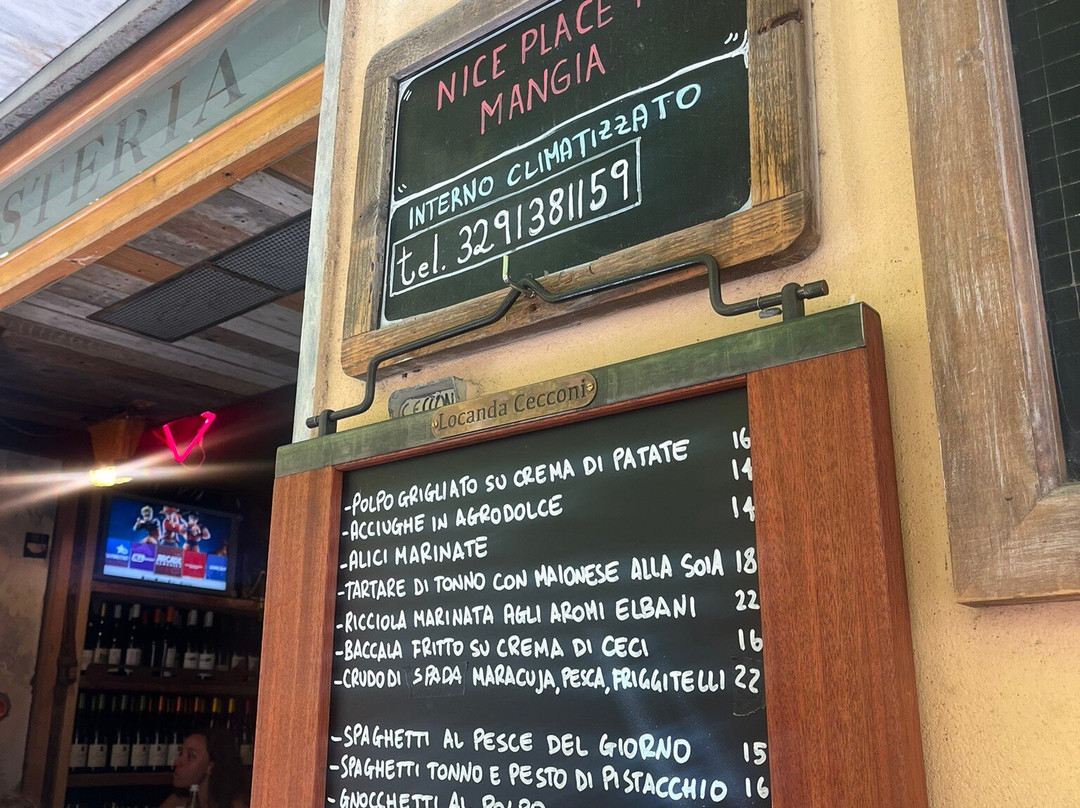 STERIA
NICE PLACE
MANGIA
INTERNO CLIMATIZZATO
tel. 3291381159
CECCONI
Locanda Cecconi
-POLPO GRIGLIATO SU CREMA DI PATATE 16
-ACCIUGHE IN AGRODOLCE 14
-ALICI MARINATE 14
-TARTARE DI TONNO CON MAIONESE ALLA SOIA 18
-RICCIOLA MARINATA AGLI AROMI ELBANI 22
-BACCALA FRITTO SU CREMA DI CECI 16
-CRUDO DI SPADA MARACUJA, PESCA, FRIGGITELLI 22
-SPAGHETTI AL PESCE DEL GIORNO 15
-SPAGHETTI TONNO E PESTO DI PISTACCHIO 16
-GNOCCHETTI AL POLPO